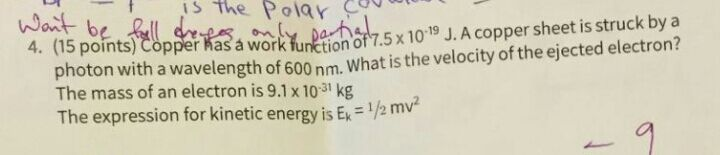 is the Polar
Won't be full charges, only partial
4. (15 points) Copper has a work function of 7.5 x 10⁻¹⁹ J. A copper sheet is struck by a
photon with a wavelength of 600 nm. What is the velocity of the ejected electron?
The mass of an electron is 9.1 x 10⁻³¹ kg
The expression for kinetic energy is Eₖ = ½ mv²
– 9